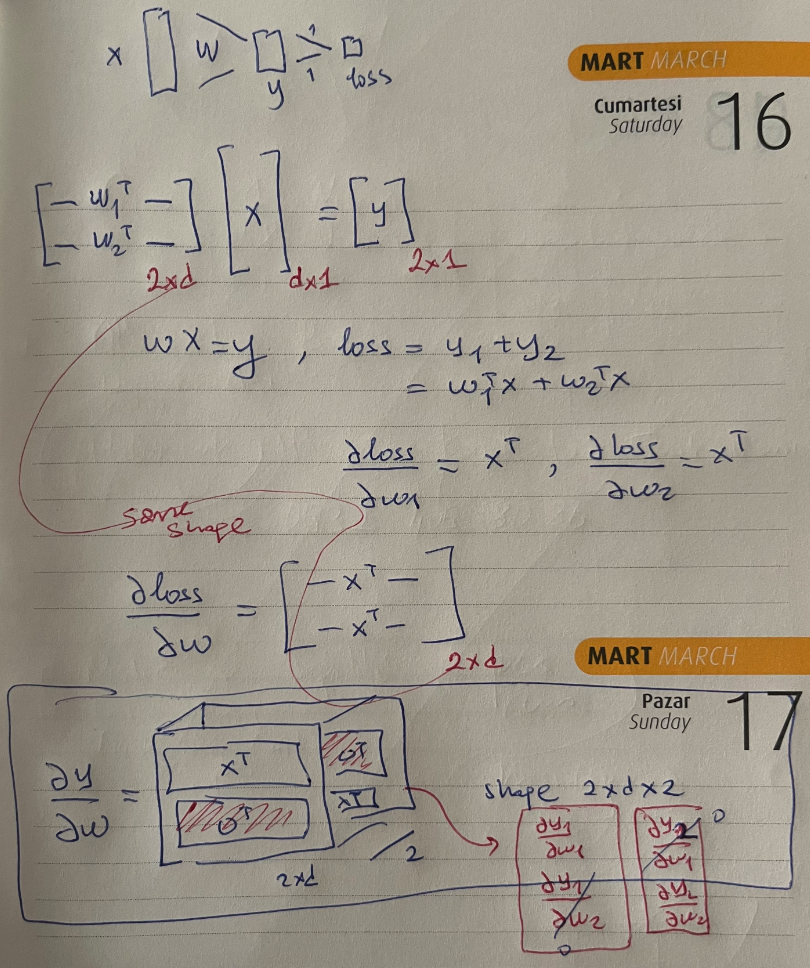 x W y 1 1 loss
MART MARCH
Cumartesi
Saturday
16
[— w₁ᵀ —] [x] = [y]
[— w₂ᵀ —]
2xd dx1 2x1
wx = y , loss = y₁ + y₂
= w₁ᵀx + w₂ᵀx
∂loss/∂w₁ = xᵀ , ∂loss/∂w₂ = xᵀ
same
shape
∂loss/∂w = [— xᵀ —]
[— xᵀ —]
2xd
MART MARCH
Pazar
Sunday
17
∂y/∂w = xᵀ 0ᵀ
0ᵀ xᵀ
2xd 2
shape 2xdx2
∂y₁/∂w₁ ∂y₂/∂w₁ 0
∂y₁/∂w₂ ∂y₂/∂w₂
0